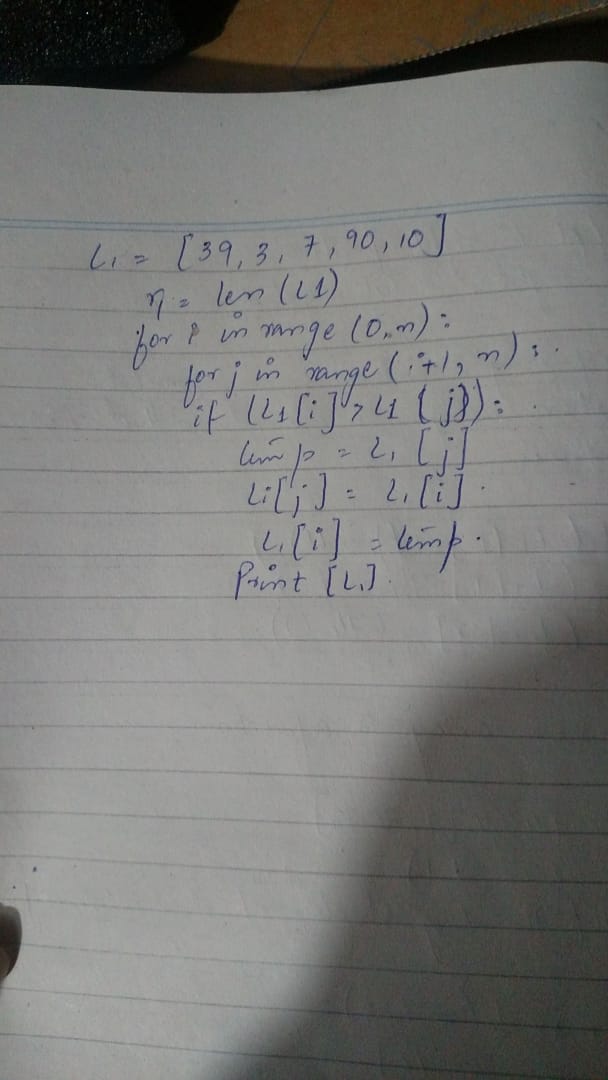 L1 = [39, 3, 7, 90, 10]
n = len (L1)
for i in range (0, n):
for j in range (i+1, n):
if (L1[i] > L1[j]):
temp = L1[j]
Li[j] = L1[i]
L1[i] = temp.
Print [L1]